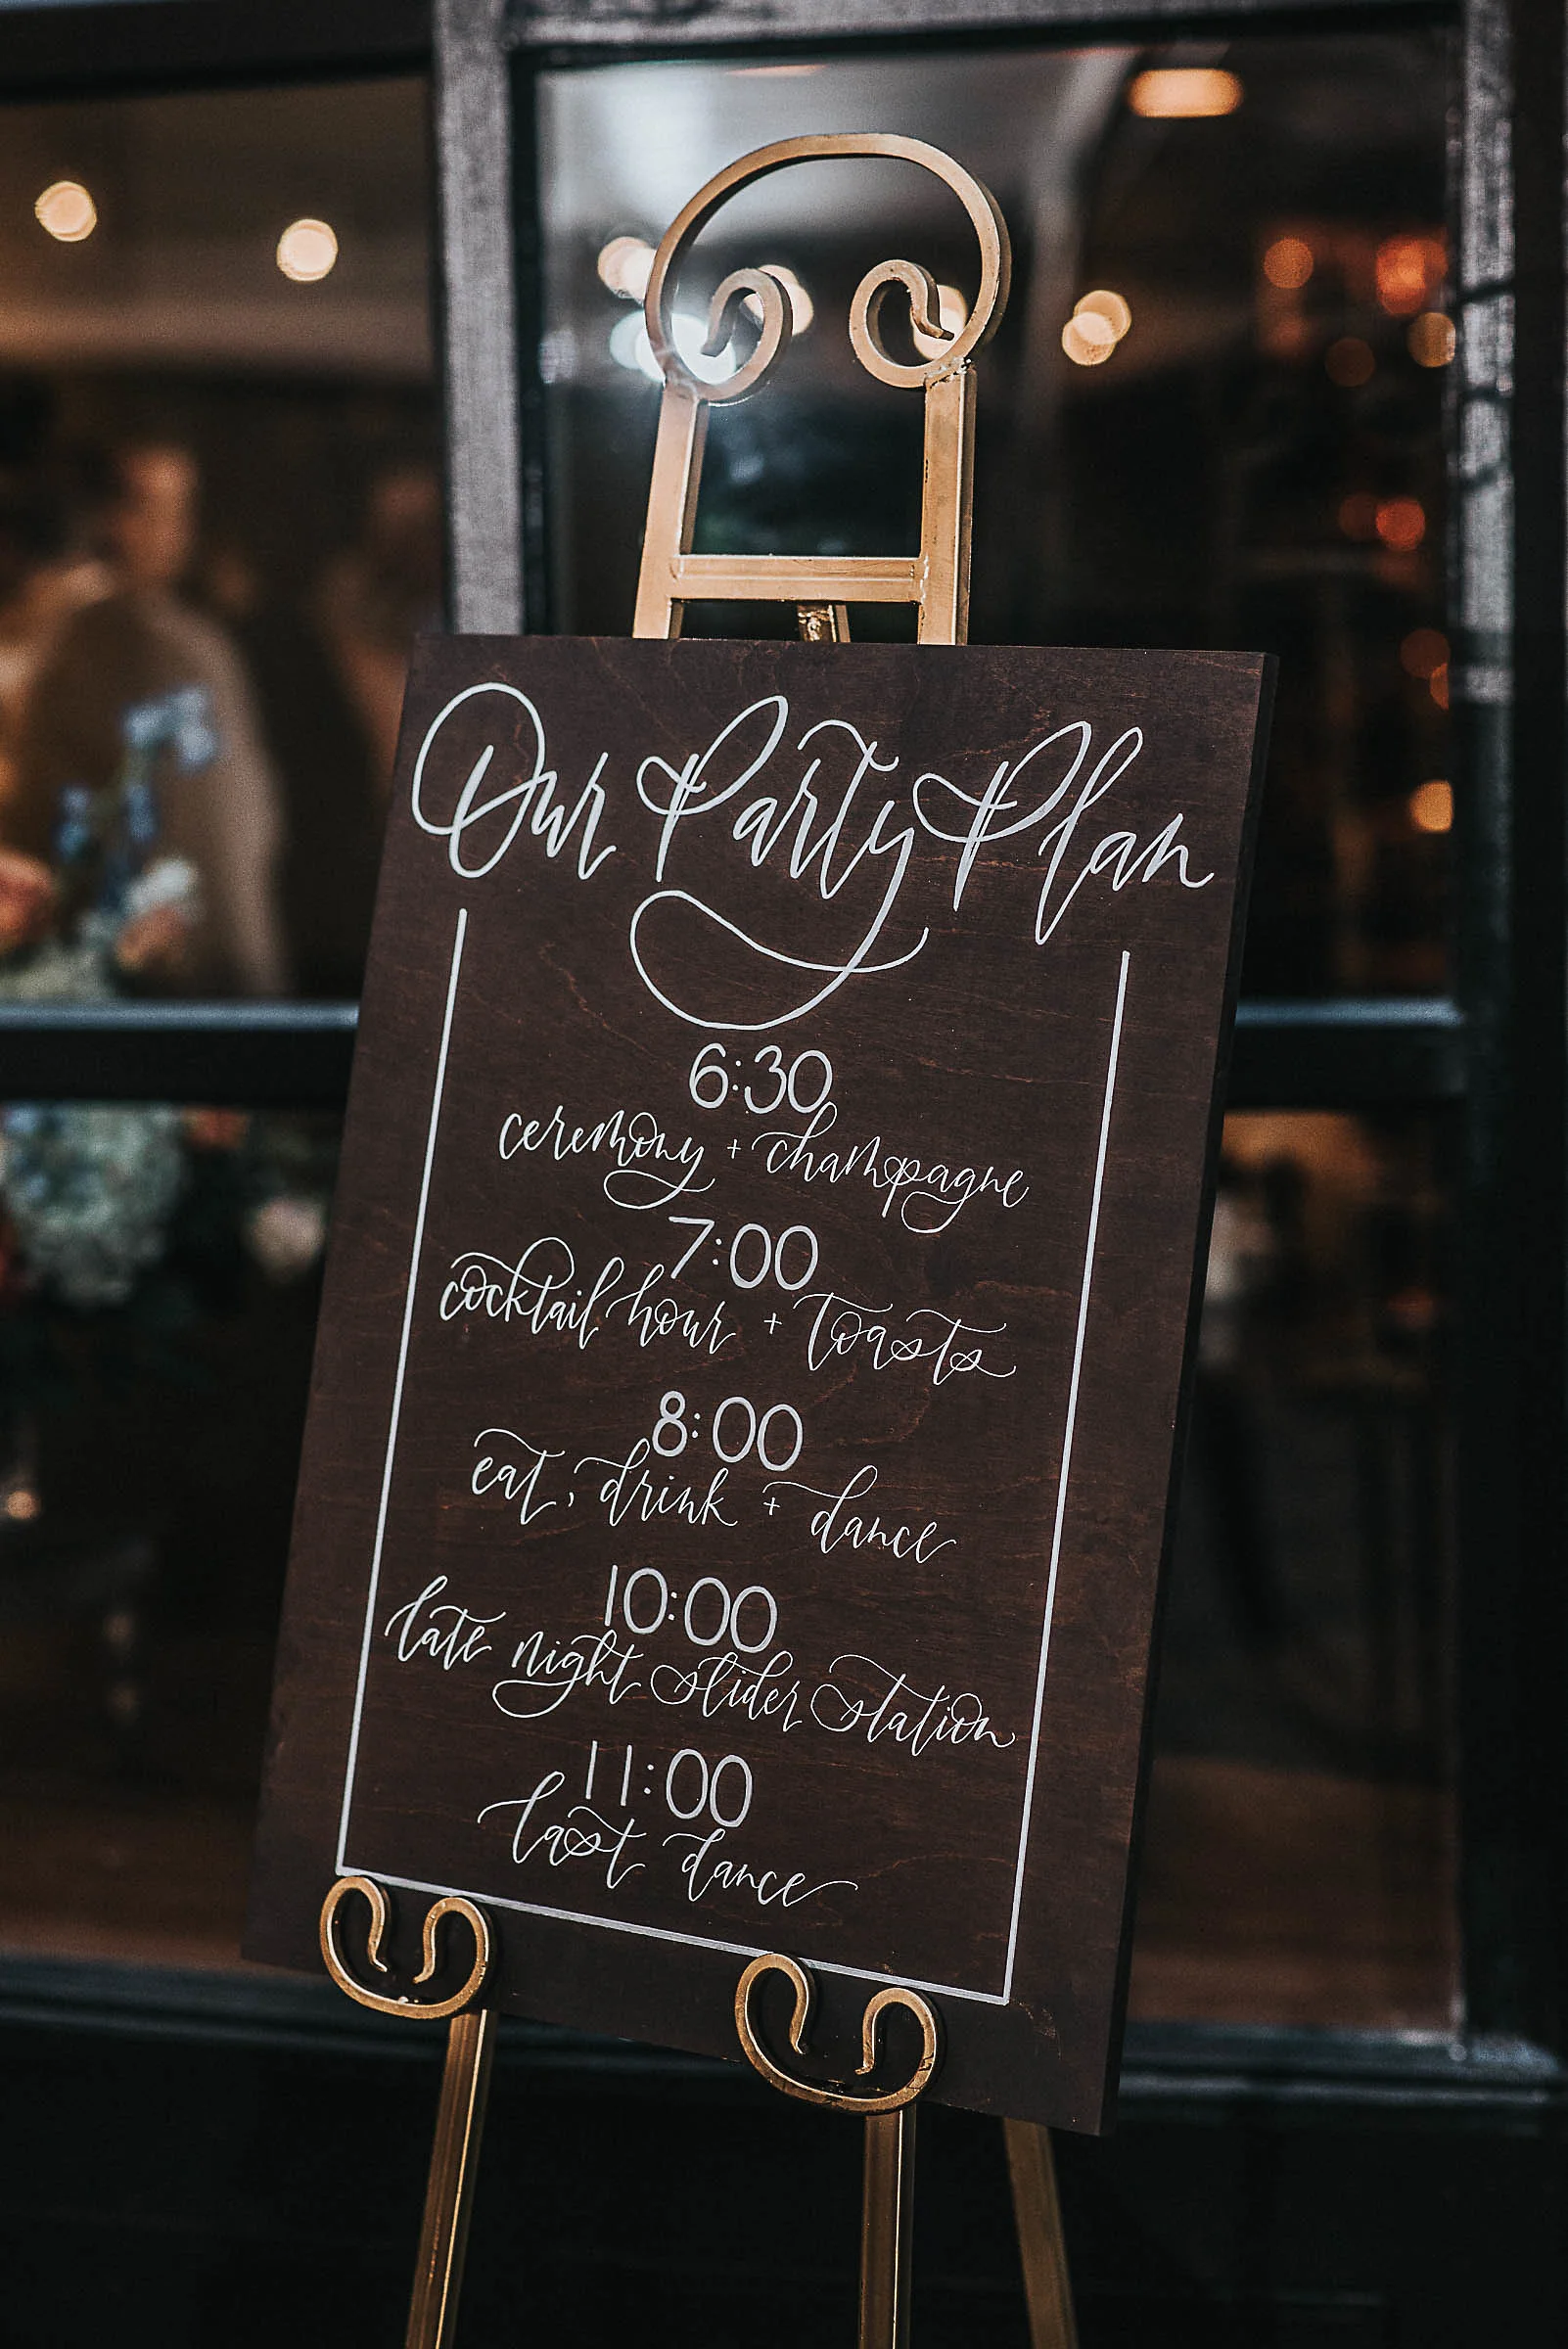 Our Party Plan
6:30
ceremony + champagne
7:00
cocktail hour + toasts
8:00
eat, drink + dance
10:00
late night slider station
11:00
last dance